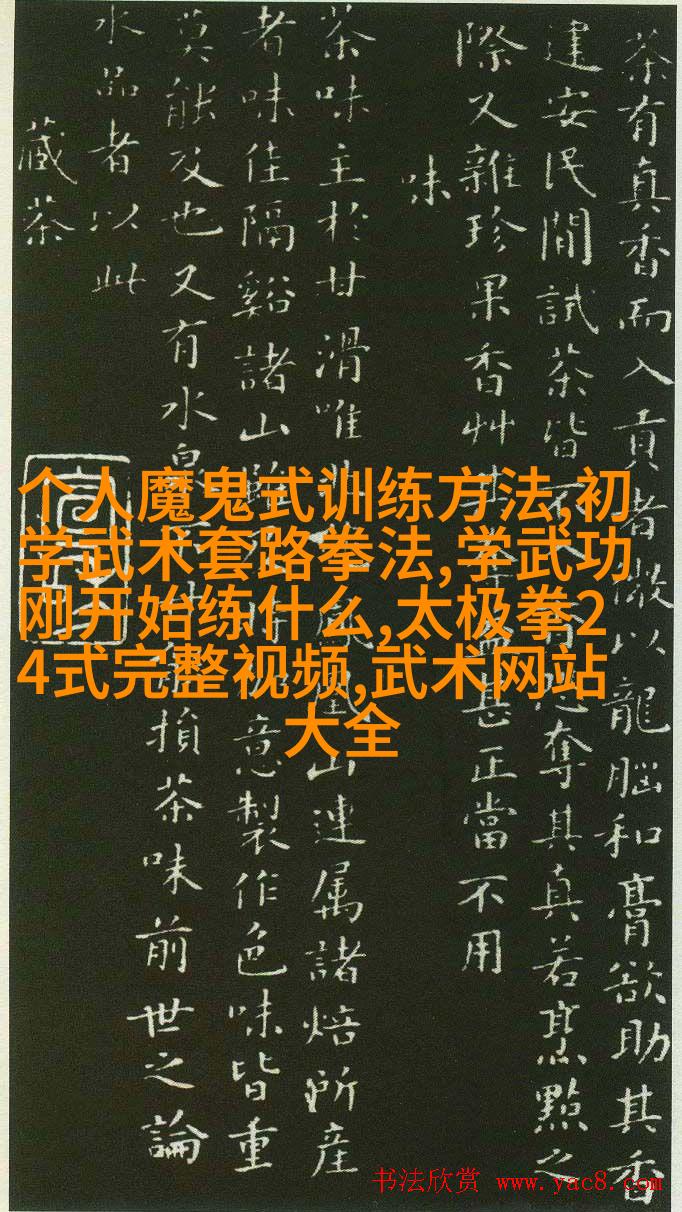 茶有真香而入貢者微以龍腦和膏欲助其香
建安民間試茶皆奪其真若烹點之
際又雜珍果香艸甚正當不用
味
茶味主於甘滑唯山連属諸焙所産
者味佳隔谿諸山意製作色味皆重
莫能及也又有水泉損茶味前世之論
水品者以此
藏茶
个人魔鬼式训练方法,初
学武术套路拳法,学武功
刚开始练什么,太极拳2
4式完整视频,武术网站
大全
书法欣赏 www.yac8.com